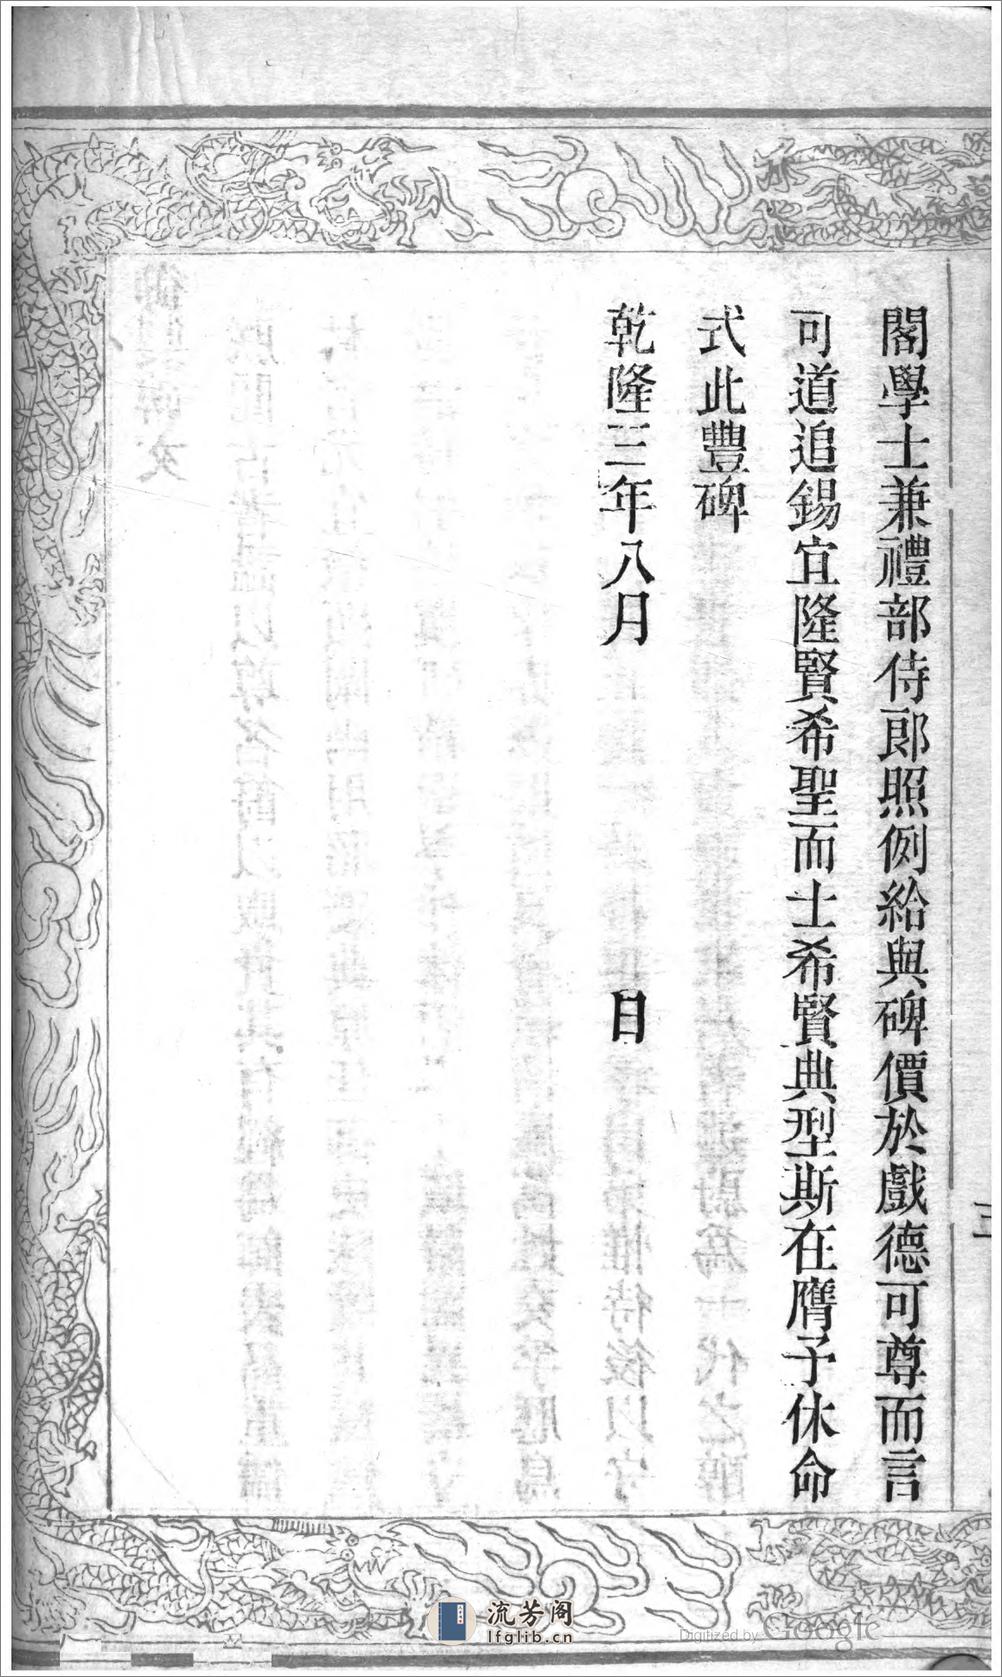 閣學士兼禮部侍郎照例給與碑價於戲德可尊而言
可道追錫宜隆賢希聖而士希賢典型斯在膺予休命
式此豐碑
乾隆三年八月　日
三
流芳阁
lfglib.cn
Digitized by Google